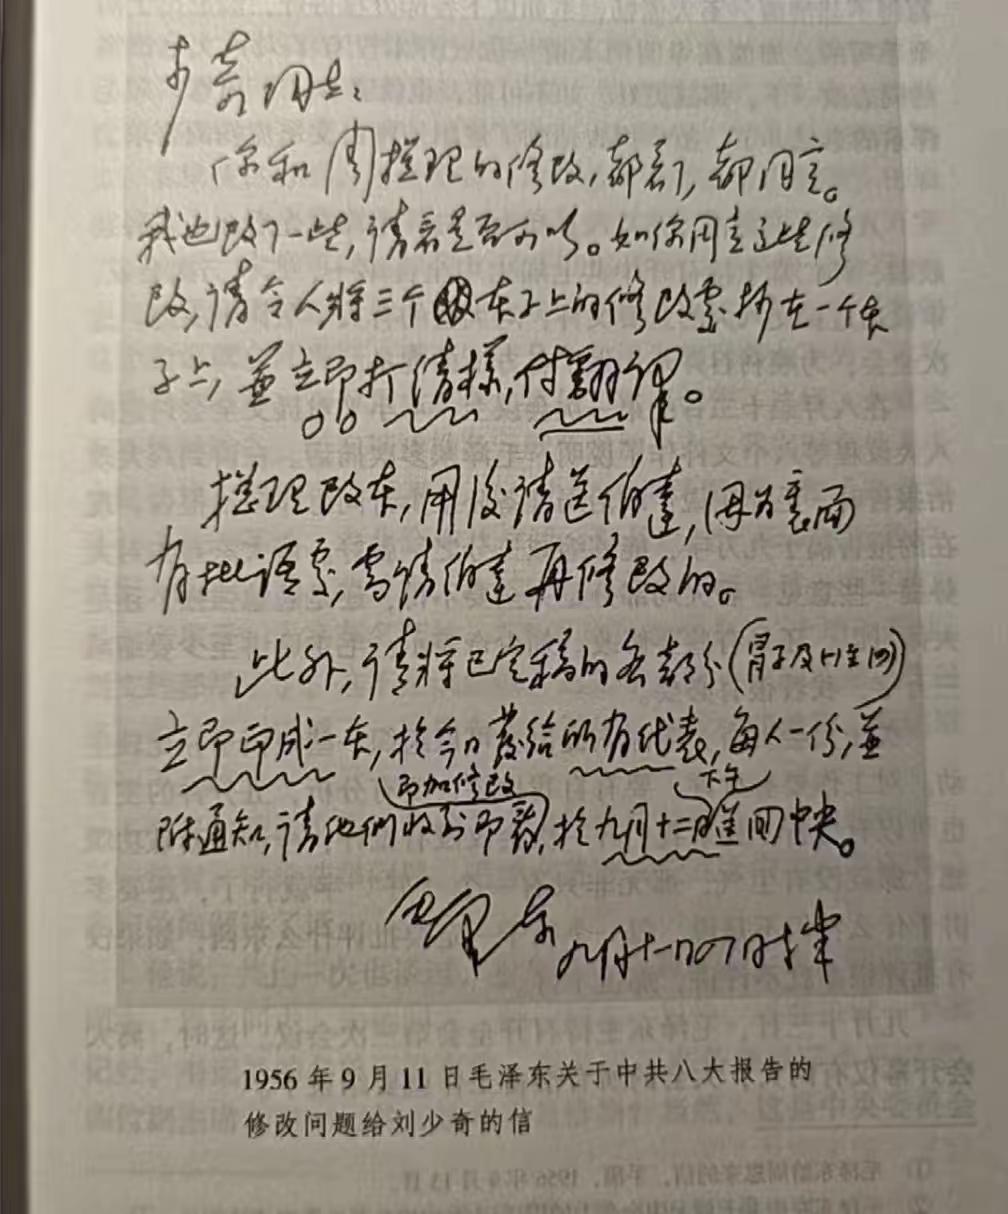 少奇同志:
你和周总理的修改,都看了,都同意。
我也改了一些,请看是否可以。如你同意这些修
改,请令人将三个本子上的修改处抄在一个本
子上,並立即打清样,付翻译。
总理改本,用后请送伯达,因为里面
有批语处,需请伯达再修改的。
此外,请将已定稿的各部分
立即印成一本,於今日发给所有代表,每人一份,並
即加修改 下午
附通知,请他们收到即看,於九月十二日退回中央。
毛泽东 九月十一日
1956 年 9 月 11 日毛泽东关于中共八大报告的
修改问题给刘少奇的信